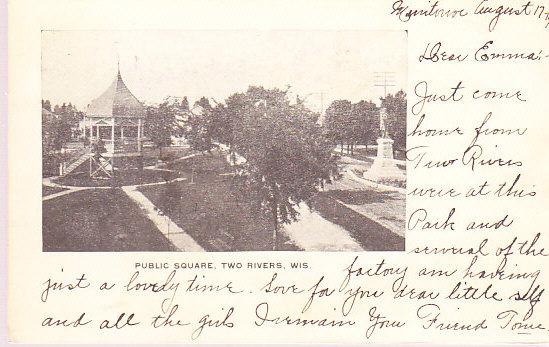 Manitowoc August 17
Dear Emma:-
Just come
home from
Two Rivers
were at this
Park and
several of the
PUBLIC SQUARE, TWO RIVERS, WIS.
factory am having
just a lovely time. Love for you dear little self
and all the girls I remain Your Friend